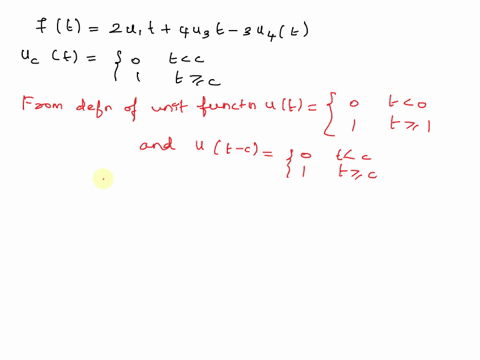 f(t) = 2u₁t + 4u₃t - 3u₄(t)
u_c(t) = { 0 t<c
1 t≥c
From defn of unit functn u(t) = { 0 t<0
1 t≥1
and u(t-c) = { 0 t<c
1 t≥c